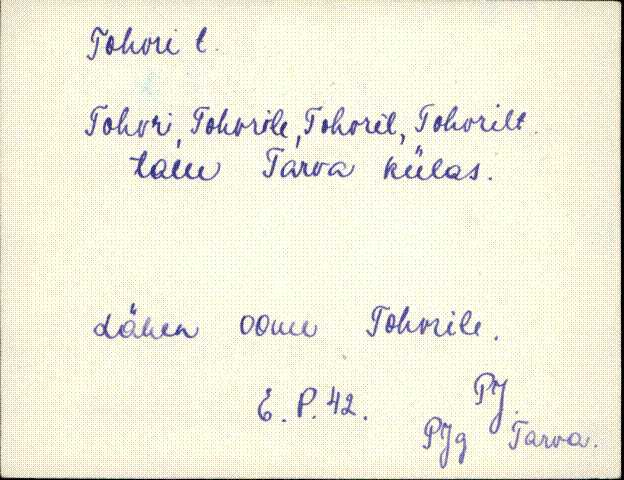 Tohvri t.
Tohvri, Tohvrile, Tohvril, Tohvrilt.
talu Tarva külas.
Lähen oome Tohvrile.
E. P. 42.
PJ.
PJg Tarva.